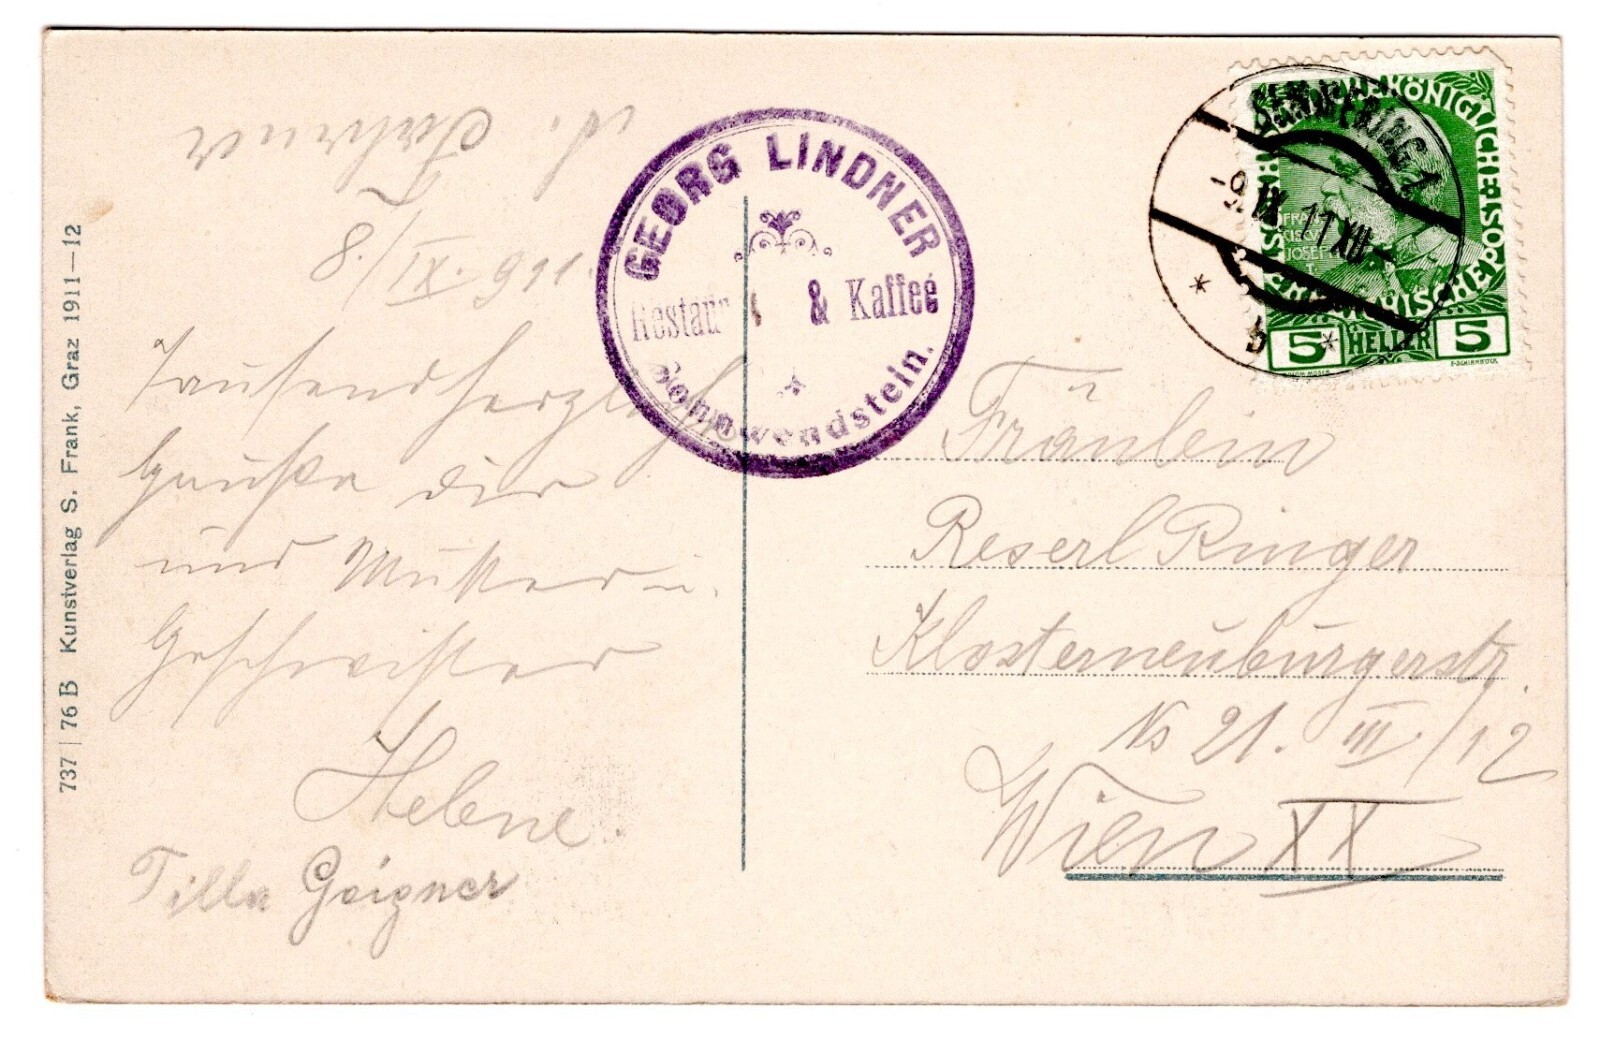 8./IX. 911.
Tausendherzliche
Grüße dir
und Mutter u.
Geschwister
Helene.
Tilla Geigner
GEORG LINDNER
Restaur & Kaffeé
Sonnwendstein.
SEMMERING 1
-9.IX.11 XII-
b
KAISERLICHE KÖNIGLICHE ÖSTERREICHISCHE POST
FRANZ JOSEF I
5 HELLER 5
Fräulein
Reserl Ringer
Klosterneuburgerstr.
No 21. III./12
Wien XX
737 | 76 B Kunstverlag S. Frank, Graz 1911—12